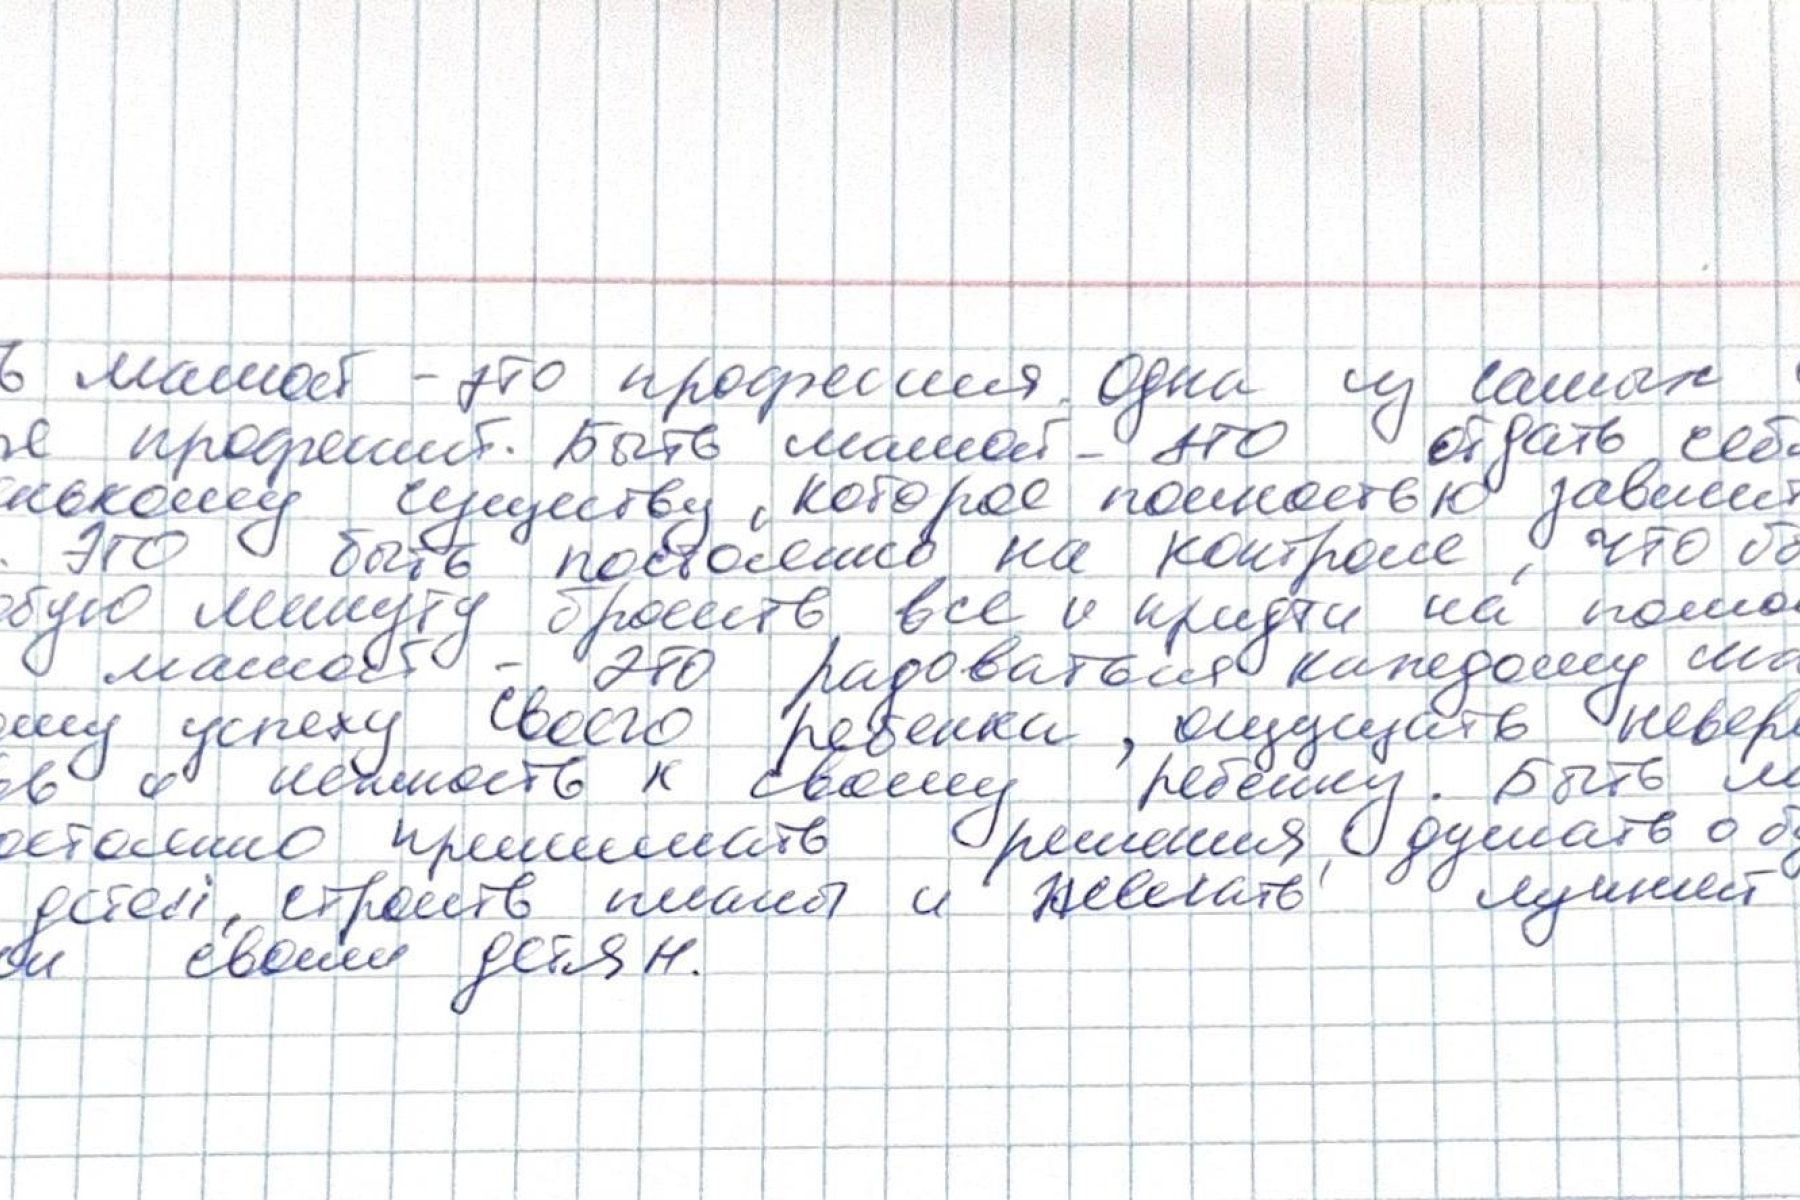 ь мамой - это профессия. Одна из самых
ые профессий. Быть мамой - это отдать себя
енькому существу, которое полностью зависит
. Это быть постоянно на контроле, что бы
юбую минуту бросить все и придти на помощ
мамой - это радоваться каждому ма
ому успеху своего ребенка, ощущать неверо
овь и нежность к своему ребенку. Быть м
остоянно принимать решения, думать о бу
детей, строить планы и желать лучшей
зни своим детям.